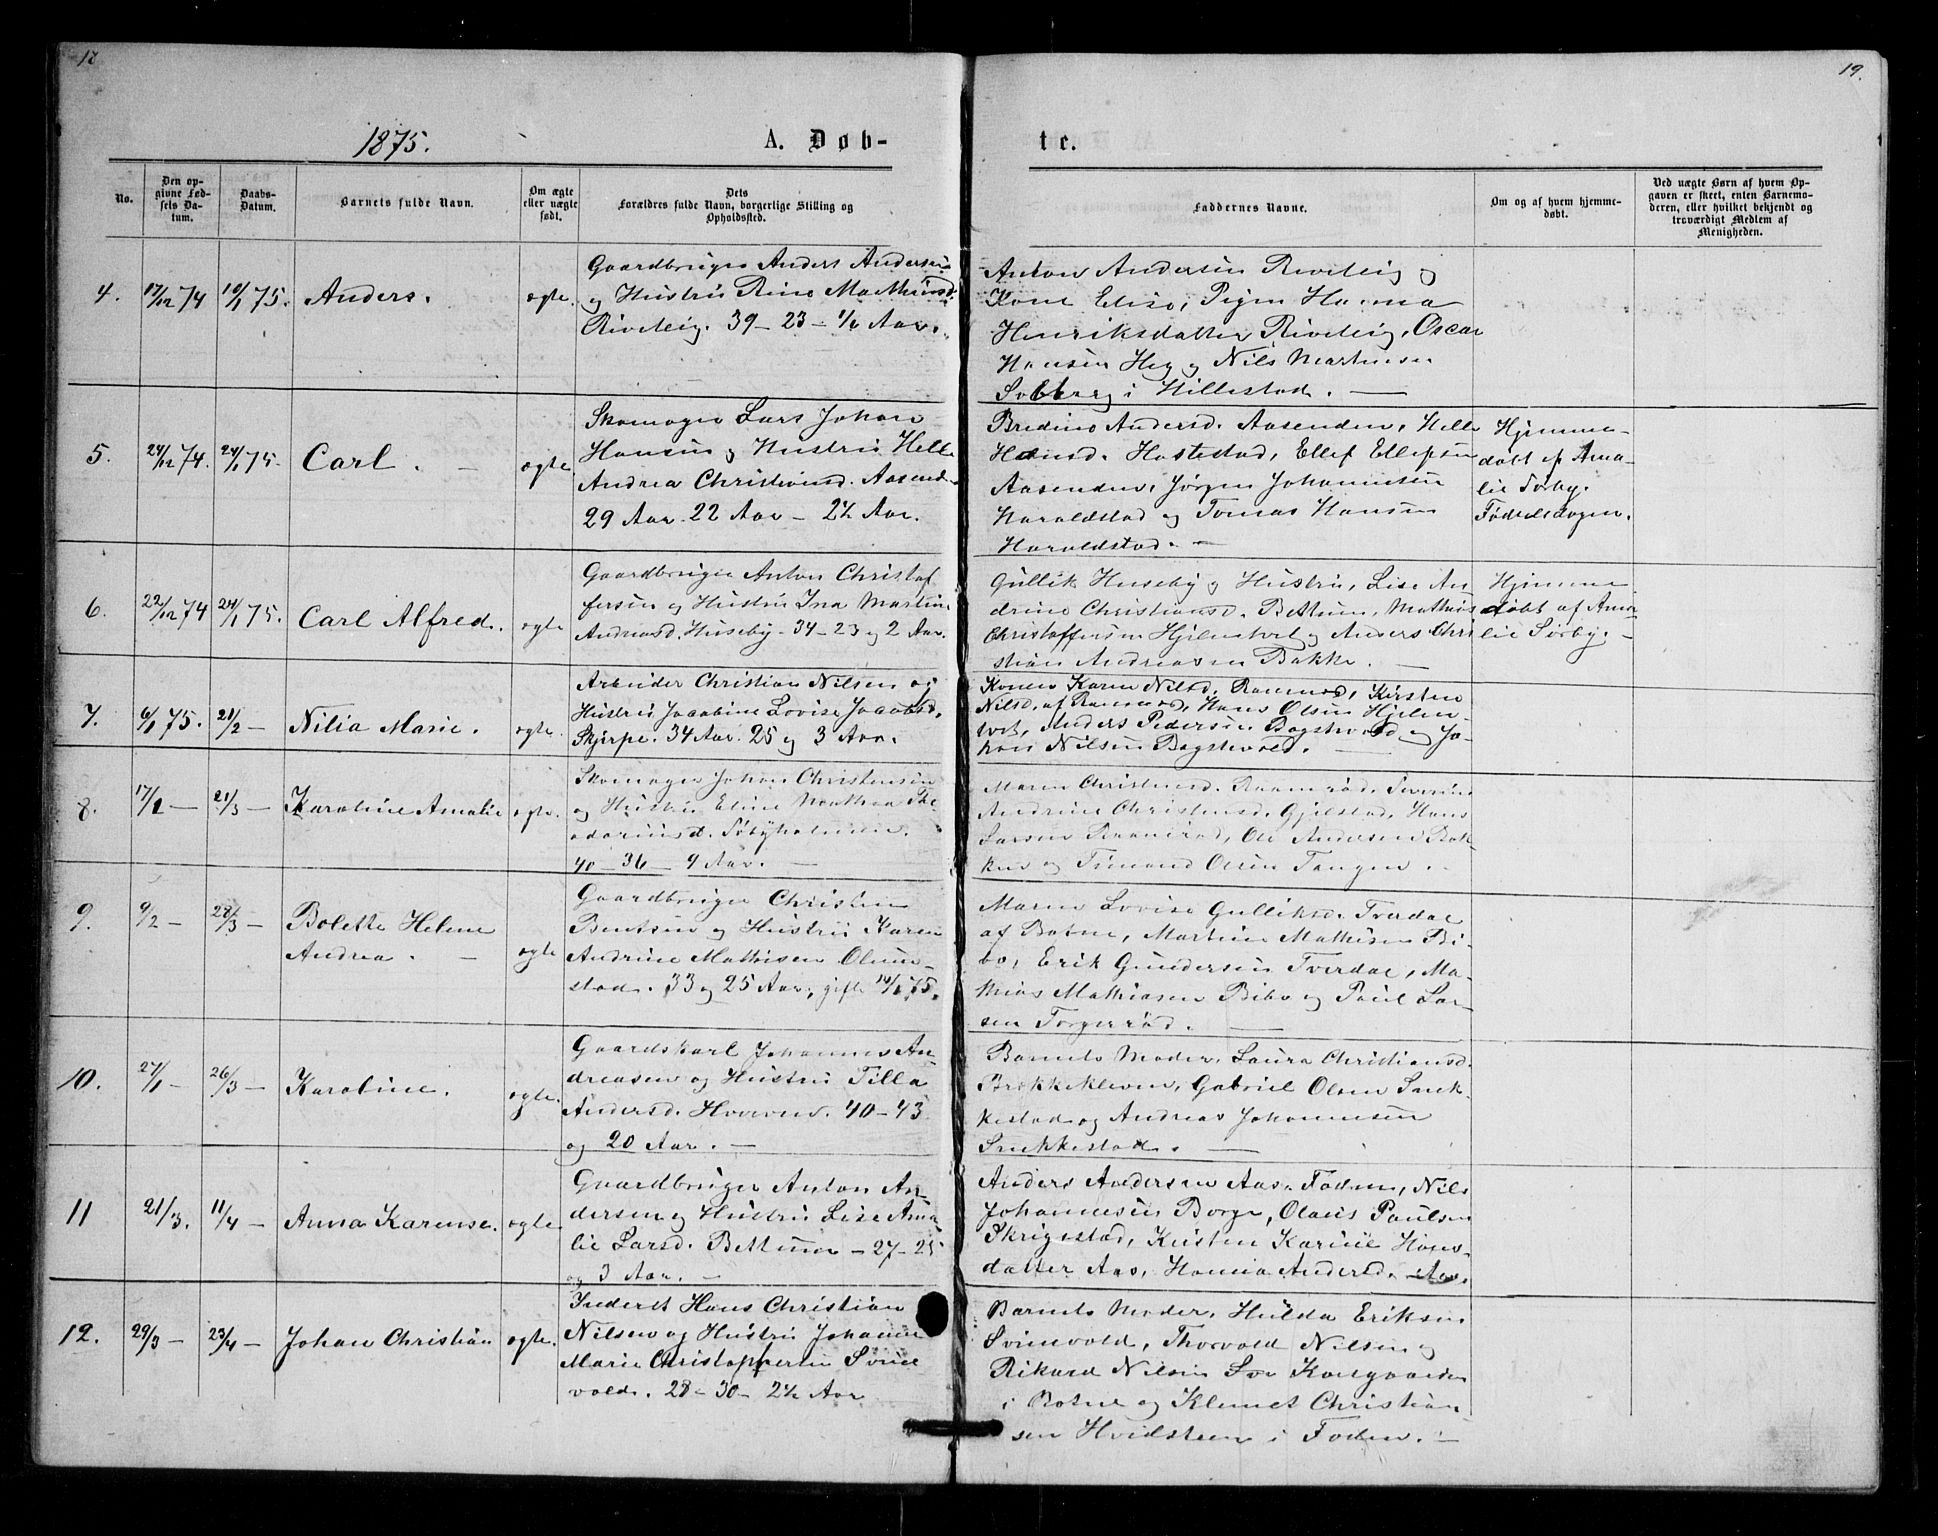 19.
1875. A. Døb-
te.
No.
Den op-
givne Fød-
sels Da-
tum.
Daabs-
Datum.
Barnets fulde Navn.
Om ægte
eller uægte
født.
Dets
Forældres fulde Navn, borgerlige Stilling og
Opholdssted.
Faddernes Navne.
Om og af hvem hjemme-
døbt.
Ved uægte Børn af hvem Op-
gaven er skeet, enten Barnemo-
deren, eller hvilket bekjendt og
troværdigt Medlem af
Menigheden.
4. 17/12 74 10/1 75. Anders. ægte.
Gaardbruger Anders Andersen
og Hustru
39 - 23 - 1/2 Aar.
Anton Andersen og
Kone Elise, Pigen Hanna
Henriksdatter Oscar
Hansen og Nils Martinsen
Solberg i Hillestad. —
5. 24/12 74. 24/1 75. Carl. — ægte
Skomager Lars Johan
Hansen og Hustru Helle
Andrea Christiansd. Aasend
29 Aar. 22 Aar - 2 1/2 Aar.
Andersd. Aasenden, Helle
Hansd. Ellef Ellefsen
Aasenden, Jørgen Johannesen
Haraldstad og Tomas Hansen
Haraldstad. —
Hjemme-
døbt af Ama-
lie Sørby.
Fødselsdagen.
6. 22/12 74 24/1 75. Carl Alfred. ægte
Gaardbruger Anton Christof
fersen og Hustru Ina Martine
Andreasd. Huseby - 34 - 23 og 2 Aar.
Gullik Huseby og Hustru, Lise An
drine Christiansd. Bettum, Mathias
Christoffersen Hjelmtvet og Anders Chri
stian Andreassen Bakke. —
Hjemme
døbt af Ama
lie Sørby. —
7. 6/1 75. 21/2 Nilia Marie. ægte.
Arbeider Christian Nilsen og
Hustru Jacobine Lovise Jacobsd.
Skjerpe. 34 Aar. 25 og 3 Aar.
Konen Karen Nilsd. Kirsten
Nilsd. af Hans Olsen Hjelm-
tvet, Anders Pedersen og Jo-
han Nilsen —
8. 17/2 — 21/3 — Karoline Amalie ægte.
Skomager Johan Christensen
og Hustru Eline Mathea The
odoriusd.
40 - 36 - 9 Aar. —
Maren Christensd. Severine
Andrine Christensd. Gjelstad, Hans
Larsen Ole Andersen Bak-
ken og Olsen Tangen. —
9. 9/2 — 28/3 — Bolette Helene
Andrea. — ægte
Gaardbruger Christen
Bentsen og Hustru Karen
Andrine Mathisen
stad. 33 og 25 Aar, gifte 14/1 75.
Maren Lovise Gulliksd. Tverdal
af Botne, Martine Mathisen Bi-
bo, Erik Gundersen Tverdal, Ma-
thias Mathiasen Bibo og Paul Lar-
sen Torgerrød. —
10. 27/1 — 26/3 — Karoline. ægte.
Gaardskarl Johannes An-
dreasen og Hustru Tilla
Andersd. 40 - 43
og 20 Aar. —
Barnets Moder, Laura Christiansd.
Brekkekleven, Gabriel Olsen Snek-
kestad og Andreas Johannesen
Snekkestad. —
11 21/3. 11/4 — Anna Karense. ægte
Gaardbruger Anton An-
dersen og Hustru Lise Ama
lie Larsd. Bettum - 27 - 25
og 3 Aar. —
Anders Andersen Aas, Foden, Nils
Johannesen Borge, Olaus Paulsen
Skrigestad, Kirsten Karine Hans-
datter Aas, Hanna Andersd. Aas.
12. 29/3 — 23/4 — Johan Christian ægte.
Inderst Hans Christian
Nilsen og Hustru Johanne
Marie Christoffersen
vold. 28 - 30 - 2 1/2 Aar
Barnets Moder, Hulda Eriksen
Thorvald Nilsen og
Rikard Nilsen
i Botne og Klemet Christian
sen Hvidsteen i Foden. —